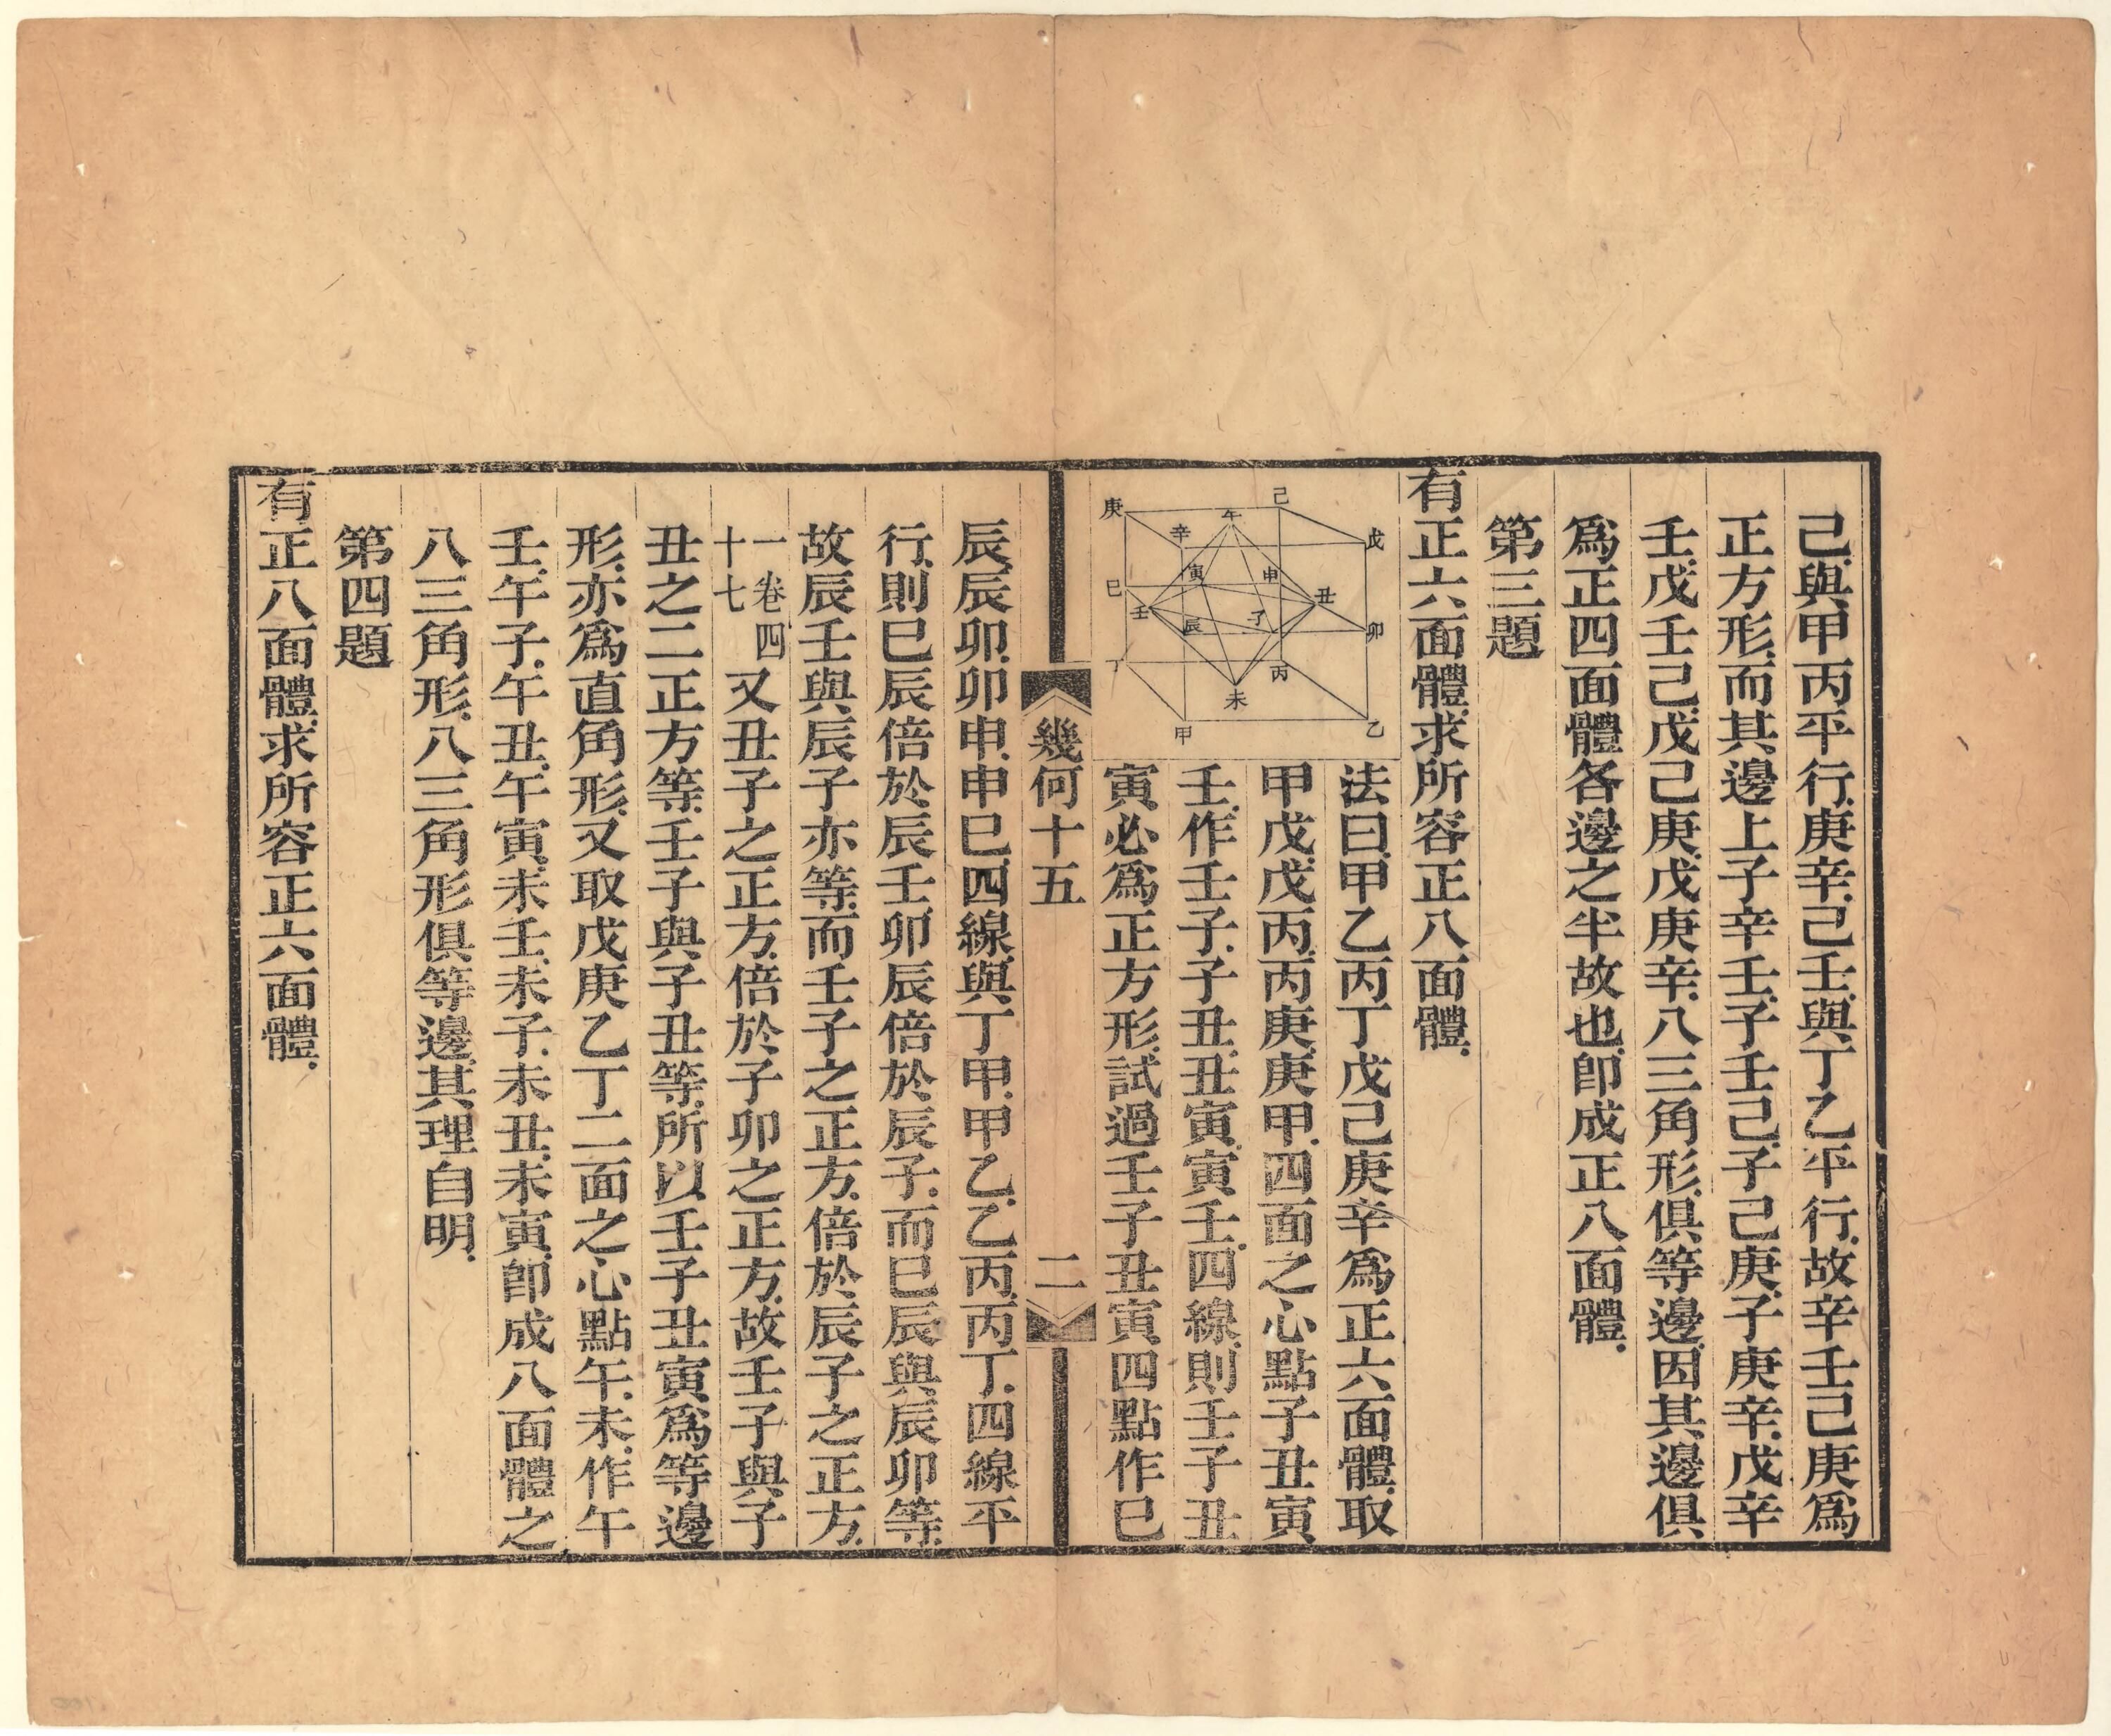 己與甲丙平行庚辛己壬與丁乙平行故辛壬己庚爲
正方形而其邊上子辛壬子壬己子己庚子庚辛戊辛
壬戊壬己戊己庚戊庚辛八三角形俱等邊因其邊俱
爲正四面體各邊之半故也卽成正八面體
第三題
有正六面體求所容正八面體
己
庚
午
辛
戊
寅
申
巳
丑
壬
子
辰
卯
丁
丙
未
甲
乙
法曰甲乙丙丁戊己庚辛爲正六面體取
甲戊戊丙丙庚庚甲四面之心點子丑寅
壬作壬子子丑丑寅寅壬四線則壬子丑
寅必爲正方形試過壬子丑寅四點作巳
幾何十五
二
辰辰卯卯申申巳四線與丁甲甲乙乙丙丙丁四線平
行則巳辰倍於辰壬卯辰倍於辰子而巳辰與辰卯等
故辰壬與辰子亦等而壬子之正方倍於辰子之正方
一卷四
十七
又丑子之正方倍於子卯之正方故壬子與子
丑之二正方等壬子與子丑等所以壬子丑寅爲等邊
形亦爲直角形又取戊庚乙丁二面之心點午未作午
壬午子午丑午寅未壬未子未丑未寅卽成八面體之
八三角形八三角形俱等邊其理自明
第四題
有正八面體求所容正六面體